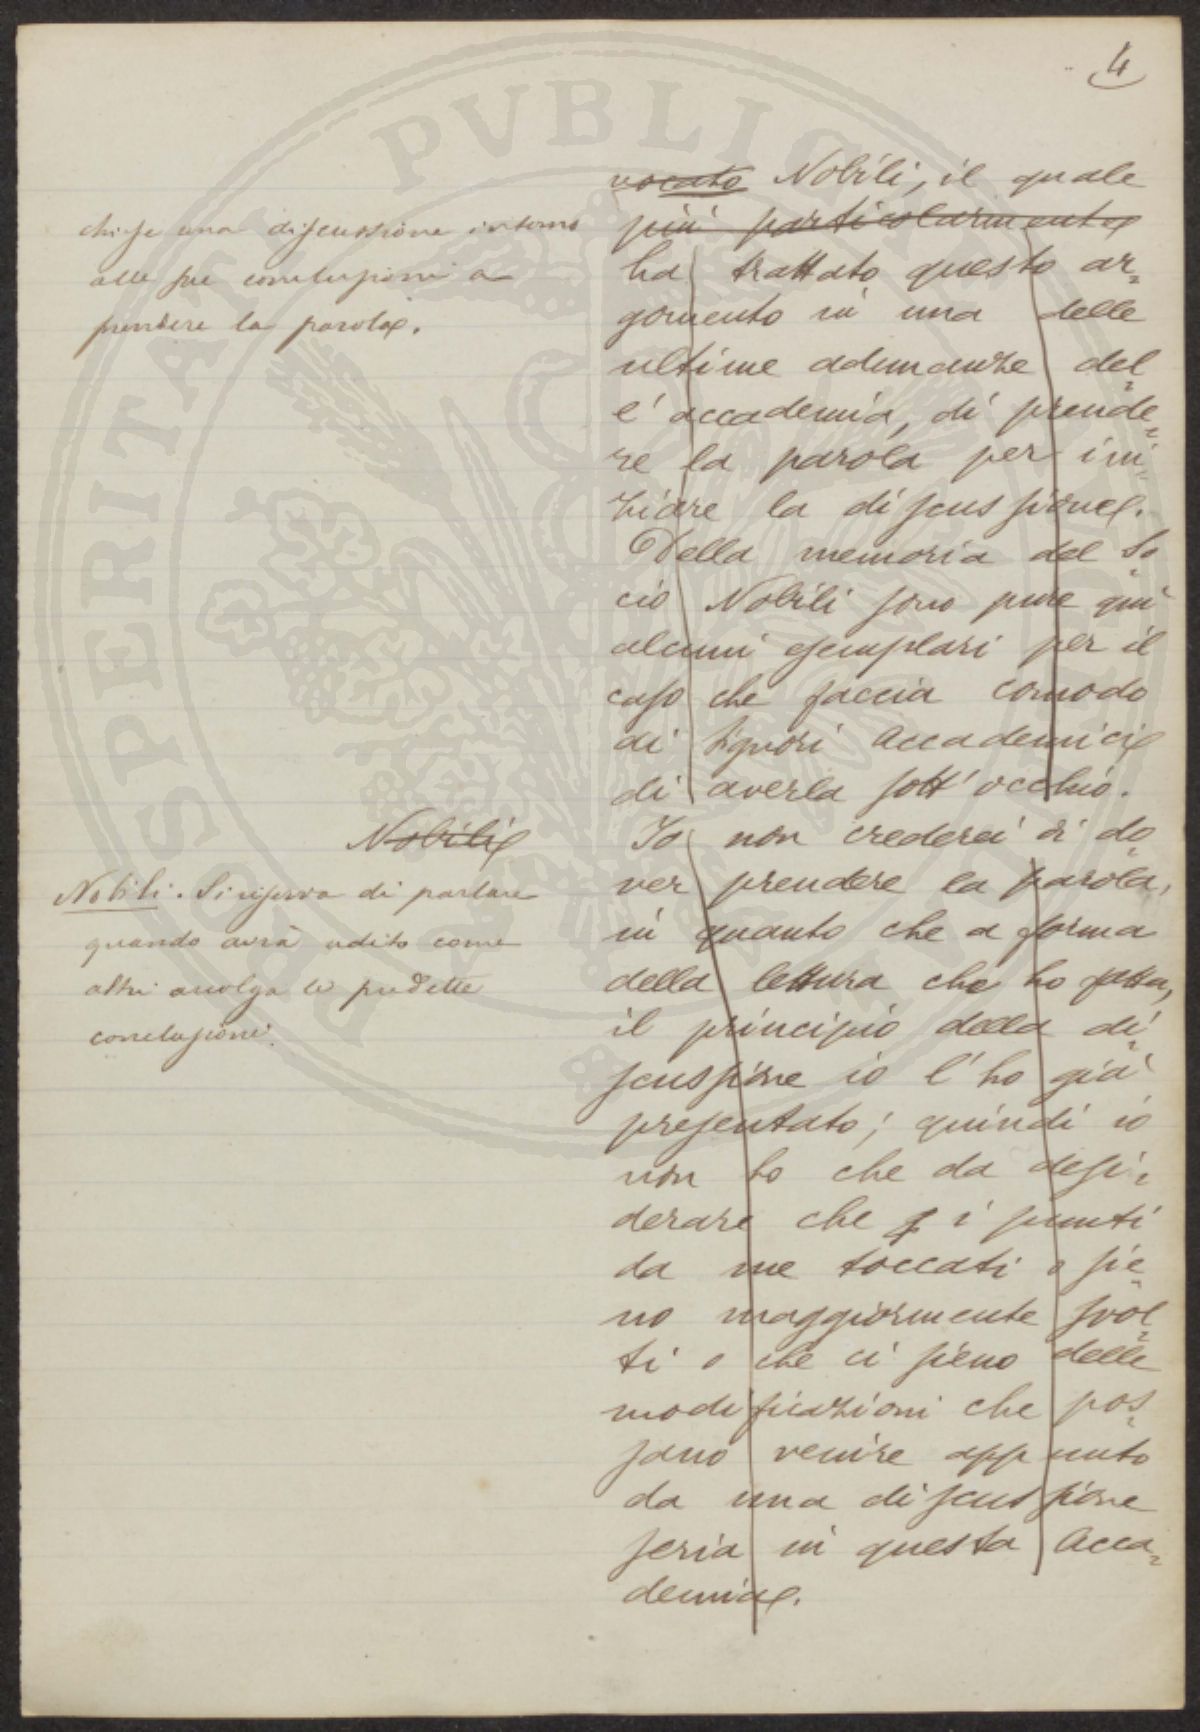 4
vocato Nobili, il quale
più particolarmente
ha trattato questo ar-
gomento in una delle
ultime adunanze del-
l'accademia, di prende-
re la parola per ini-
ziare la discussione.
Della memoria del So-
cio Nobili sono pure qui
alcuni esemplari per il
caso che faccia comodo
di signori Accademici
di averla sott'occhio.
Io non crederei di do-
ver prendere la parola,
in quanto che a forma
della lettura che ho fatta,
il principio della di-
scussione io l'ho già
presentato; quindi io
non ho che da desi-
derare che i punti
da me toccati o sie-
no maggiormente svol-
ti o che ci sieno delle
modificazioni che pos-
sano venire appunto
da una discussione
seria in questa Acca-
demia.
chiese una discussione intorno
alle sue conclusioni a
prendere la parola.
Nobili
Nobili. Si riserva di parlare
quando avrà udito come
altri accolga le predette
conclusioni.
PVBLICAE
PROSPERITATI